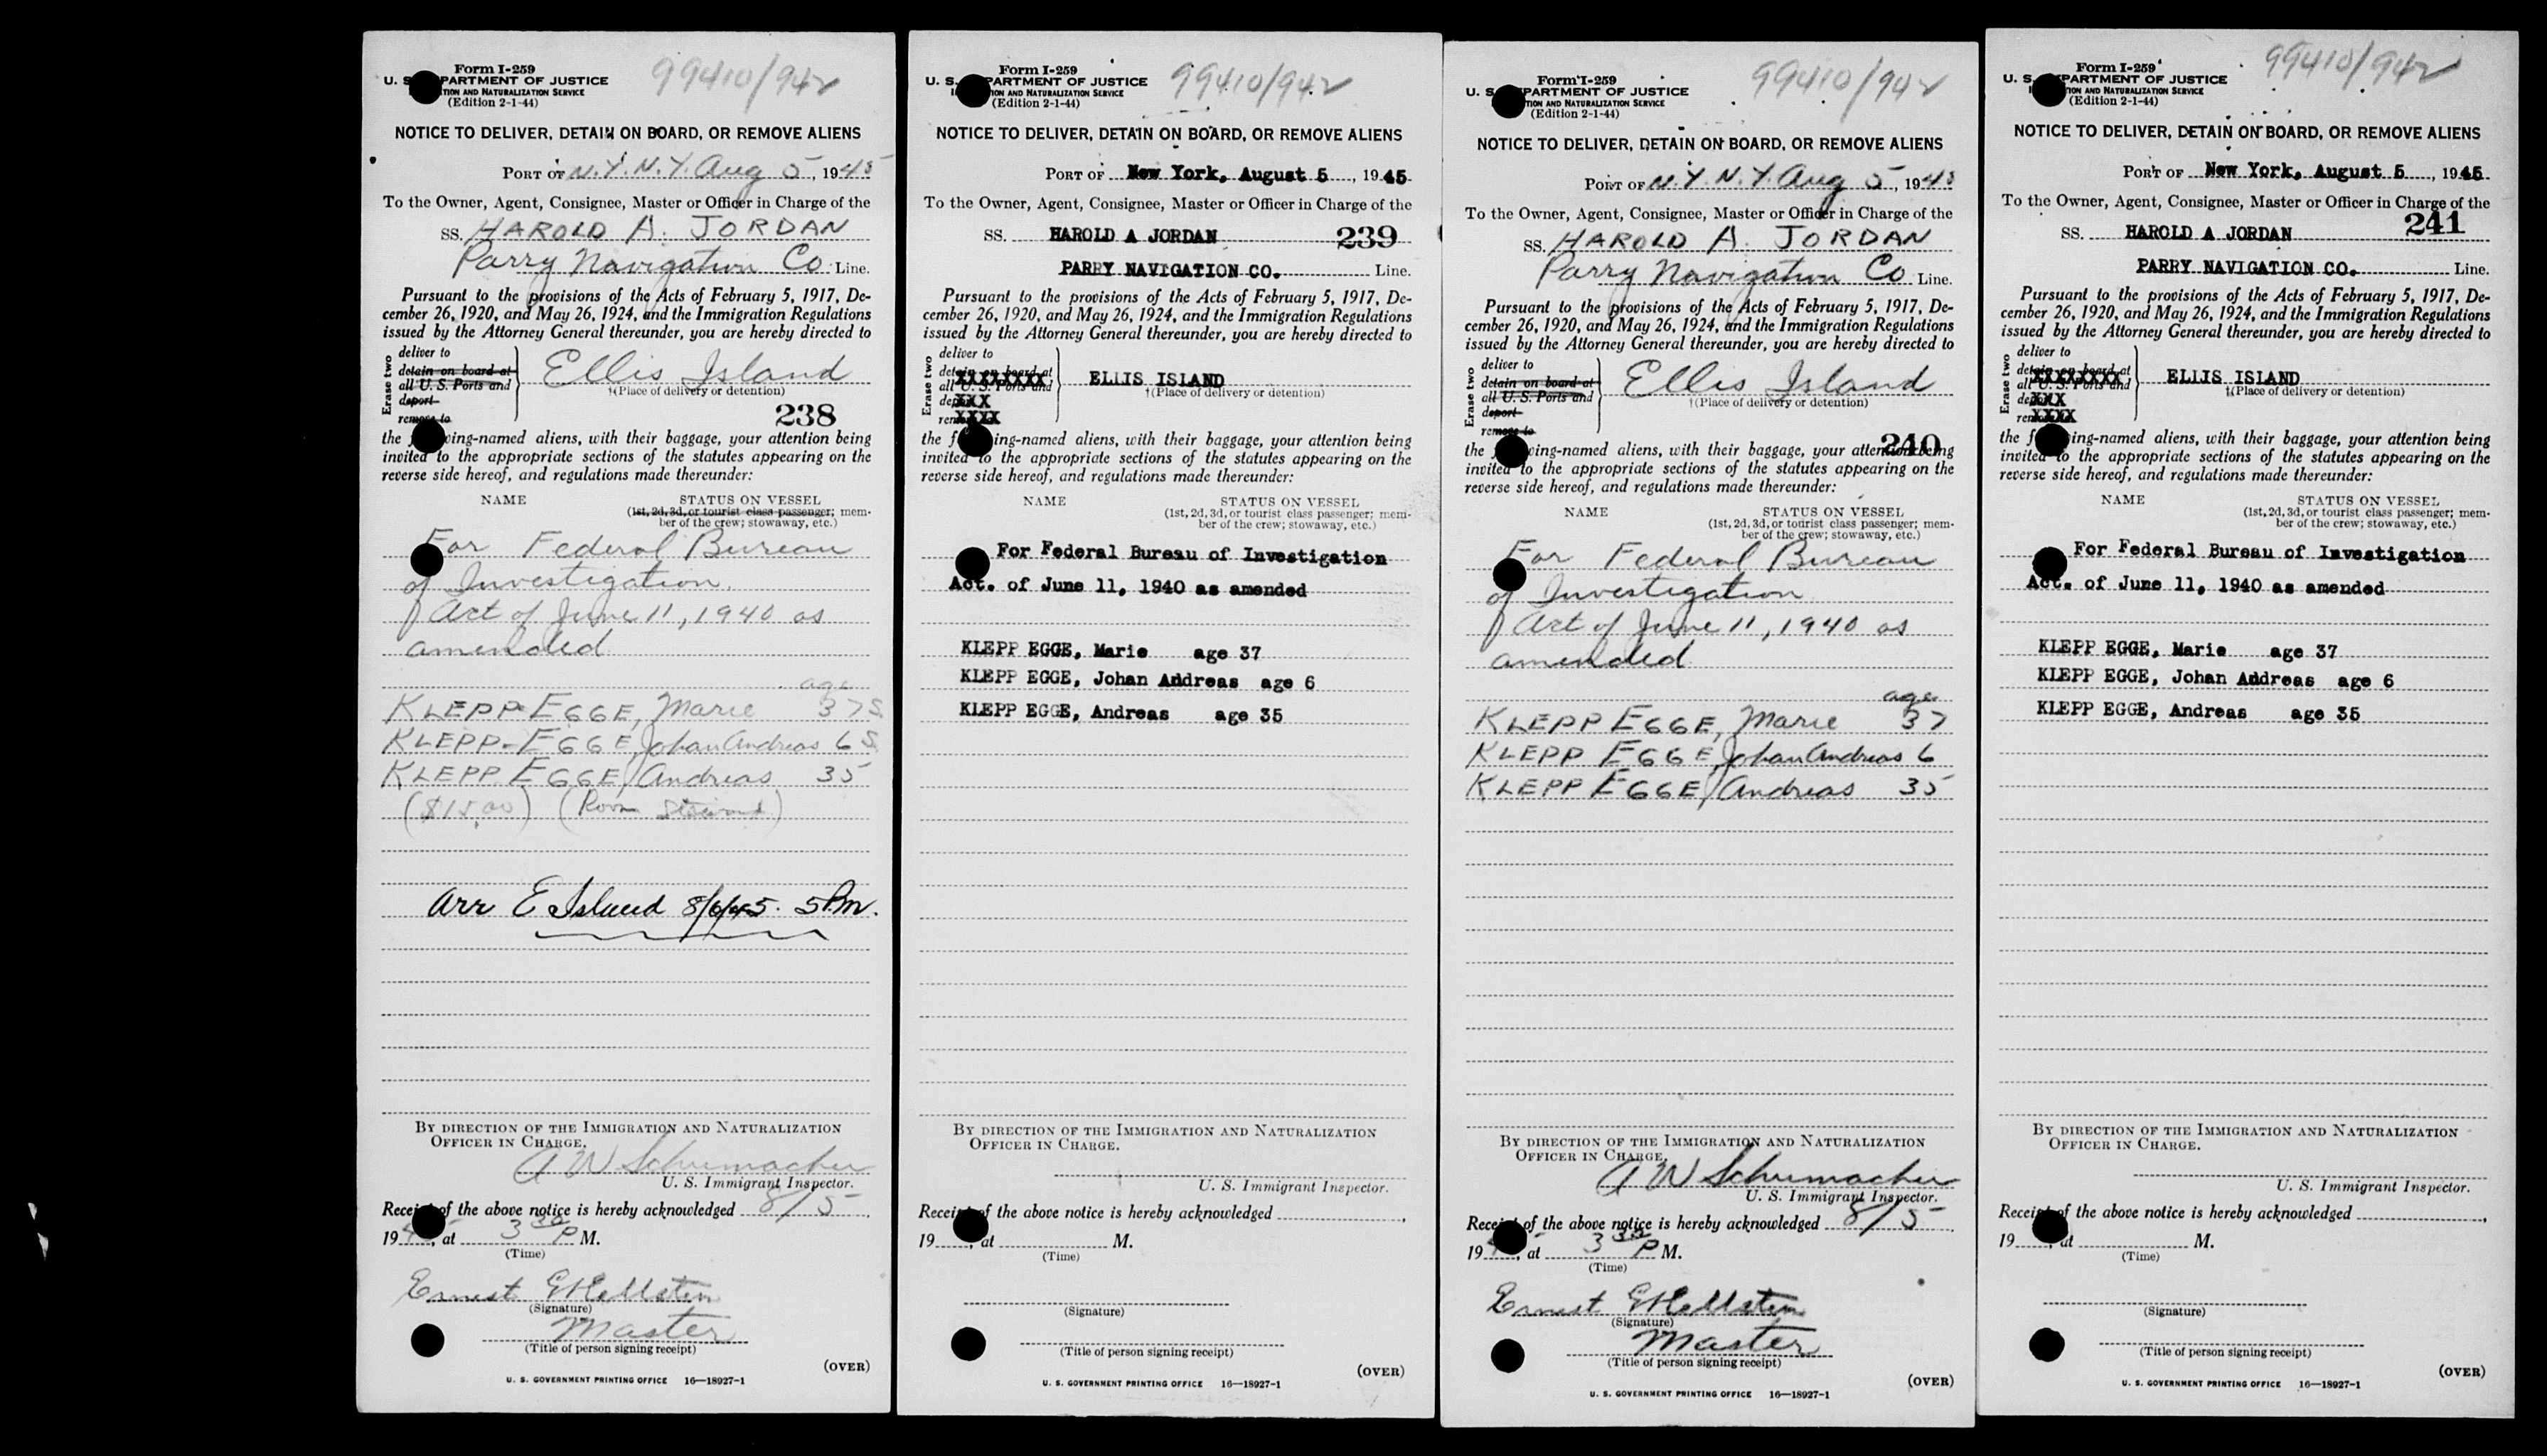 Form I-259
99410/942
U. S. DEPARTMENT OF JUSTICE
TION AND NATURALIZATION SERVICE
(Edition 2-1-44)
NOTICE TO DELIVER, DETAIN ON BOARD, OR REMOVE ALIENS
PORT OF N.Y. N.Y. Aug 5, 1945
To the Owner, Agent, Consignee, Master or Officer in Charge of the
SS. HAROLD A. JORDAN
Parry Navigation Co Line.
Pursuant to the provisions of the Acts of February 5, 1917, De-
cember 26, 1920, and May 26, 1924, and the Immigration Regulations
issued by the Attorney General thereunder, you are hereby directed to
Erase two
deliver to
detain on board at
all U. S. Ports and
deport
remove to
Ellis Island
†(Place of delivery or detention)
238
the following-named aliens, with their baggage, your attention being
invited to the appropriate sections of the statutes appearing on the
reverse side hereof, and regulations made thereunder:
NAME STATUS ON VESSEL
(1st, 2d, 3d, or tourist class passenger; mem-
ber of the crew; stowaway, etc.)
For Federal Bureau
of Investigation.
Act of June 11, 1940 as
amended
age
KLEPP-EGGE, Marie 37 S
KLEPP-EGGE, Johan Andreas 6 S
KLEPP EGGE, Andreas 35
($15.00) (Room Steward)
Arr E Island 8/6/45. 5 Pm.
BY DIRECTION OF THE IMMIGRATION AND NATURALIZATION
OFFICER IN CHARGE.
A W Schumacher
U. S. Immigrant Inspector.
Receipt of the above notice is hereby acknowledged 8/5,
1945, at 3 30 P M.
(Time)
Ernest G Hellsten
(Signature)
Master
(Title of person signing receipt)
(OVER)
U. S. GOVERNMENT PRINTING OFFICE 16—18927-1
Form I-259
99410/942
U. S. DEPARTMENT OF JUSTICE
ION AND NATURALIZATION SERVICE
(Edition 2-1-44)
NOTICE TO DELIVER, DETAIN ON BOARD, OR REMOVE ALIENS
PORT OF New York, August 5, 1945
To the Owner, Agent, Consignee, Master or Officer in Charge of the
SS. HAROLD A JORDAN 239
PARRY NAVIGATION CO. Line.
Pursuant to the provisions of the Acts of February 5, 1917, De-
cember 26, 1920, and May 26, 1924, and the Immigration Regulations
issued by the Attorney General thereunder, you are hereby directed to
Erase two
deliver to
detain on board at
all U. S. Ports and
deport
remove to
ELLIS ISLAND
†(Place of delivery or detention)
the following-named aliens, with their baggage, your attention being
invited to the appropriate sections of the statutes appearing on the
reverse side hereof, and regulations made thereunder:
NAME STATUS ON VESSEL
(1st, 2d, 3d, or tourist class passenger; mem-
ber of the crew; stowaway, etc.)
For Federal Bureau of Investigation
Act. of June 11, 1940 as amended
KLEPP EGGE, Marie age 37
KLEPP EGGE, Johan Andreas age 6
KLEPP EGGE, Andreas age 35
BY DIRECTION OF THE IMMIGRATION AND NATURALIZATION
OFFICER IN CHARGE.
U. S. Immigrant Inspector.
Receipt of the above notice is hereby acknowledged ,
19 , at M.
(Time)
(Signature)
(Title of person signing receipt)
(OVER)
U. S. GOVERNMENT PRINTING OFFICE 16—18927-1
Form I-259
99410/942
U. S. DEPARTMENT OF JUSTICE
TION AND NATURALIZATION SERVICE
(Edition 2-1-44)
NOTICE TO DELIVER, DETAIN ON BOARD, OR REMOVE ALIENS
PORT OF N.Y. N.Y. Aug 5, 1945
To the Owner, Agent, Consignee, Master or Officer in Charge of the
SS. HAROLD A. JORDAN
Parry Navigation Co Line.
Pursuant to the provisions of the Acts of February 5, 1917, De-
cember 26, 1920, and May 26, 1924, and the Immigration Regulations
issued by the Attorney General thereunder, you are hereby directed to
Erase two
deliver to
detain on board at
all U. S. Ports and
deport
remove to
Ellis Island
†(Place of delivery or detention)
240
the following-named aliens, with their baggage, your attention being
invited to the appropriate sections of the statutes appearing on the
reverse side hereof, and regulations made thereunder:
NAME STATUS ON VESSEL
(1st, 2d, 3d, or tourist class passenger; mem-
ber of the crew; stowaway, etc.)
For Federal Bureau
of Investigation
Act of June 11, 1940 as
amended
age
KLEPP EGGE, Marie 37
KLEPP EGGE, Johan Andreas 6
KLEPP EGGE, Andreas 35
BY DIRECTION OF THE IMMIGRATION AND NATURALIZATION
OFFICER IN CHARGE.
A W Schumacher
U. S. Immigrant Inspector.
Receipt of the above notice is hereby acknowledged 8/5,
1945, at 3 30 P M.
(Time)
Ernest G Hellsten
(Signature)
Master
(Title of person signing receipt)
(OVER)
U. S. GOVERNMENT PRINTING OFFICE 16—18927-1
Form I-259
99410/942
U. S. DEPARTMENT OF JUSTICE
ION AND NATURALIZATION SERVICE
(Edition 2-1-44)
NOTICE TO DELIVER, DETAIN ON BOARD, OR REMOVE ALIENS
PORT OF New York, August 5, 1945
To the Owner, Agent, Consignee, Master or Officer in Charge of the
SS. HAROLD A JORDAN 241
PARRY NAVIGATION CO. Line.
Pursuant to the provisions of the Acts of February 5, 1917, De-
cember 26, 1920, and May 26, 1924, and the Immigration Regulations
issued by the Attorney General thereunder, you are hereby directed to
Erase two
deliver to
detain on board at
all U. S. Ports and
deport
remove to
ELLIS ISLAND
†(Place of delivery or detention)
the following-named aliens, with their baggage, your attention being
invited to the appropriate sections of the statutes appearing on the
reverse side hereof, and regulations made thereunder:
NAME STATUS ON VESSEL
(1st, 2d, 3d, or tourist class passenger; mem-
ber of the crew; stowaway, etc.)
For Federal Bureau of Investigation
Act. of June 11, 1940 as amended
KLEPP EGGE, Marie age 37
KLEPP EGGE, Johan Andreas age 6
KLEPP EGGE, Andreas age 35
BY DIRECTION OF THE IMMIGRATION AND NATURALIZATION
OFFICER IN CHARGE.
U. S. Immigrant Inspector.
Receipt of the above notice is hereby acknowledged ,
19 , at M.
(Time)
(Signature)
(Title of person signing receipt)
(OVER)
U. S. GOVERNMENT PRINTING OFFICE 16—18927-1